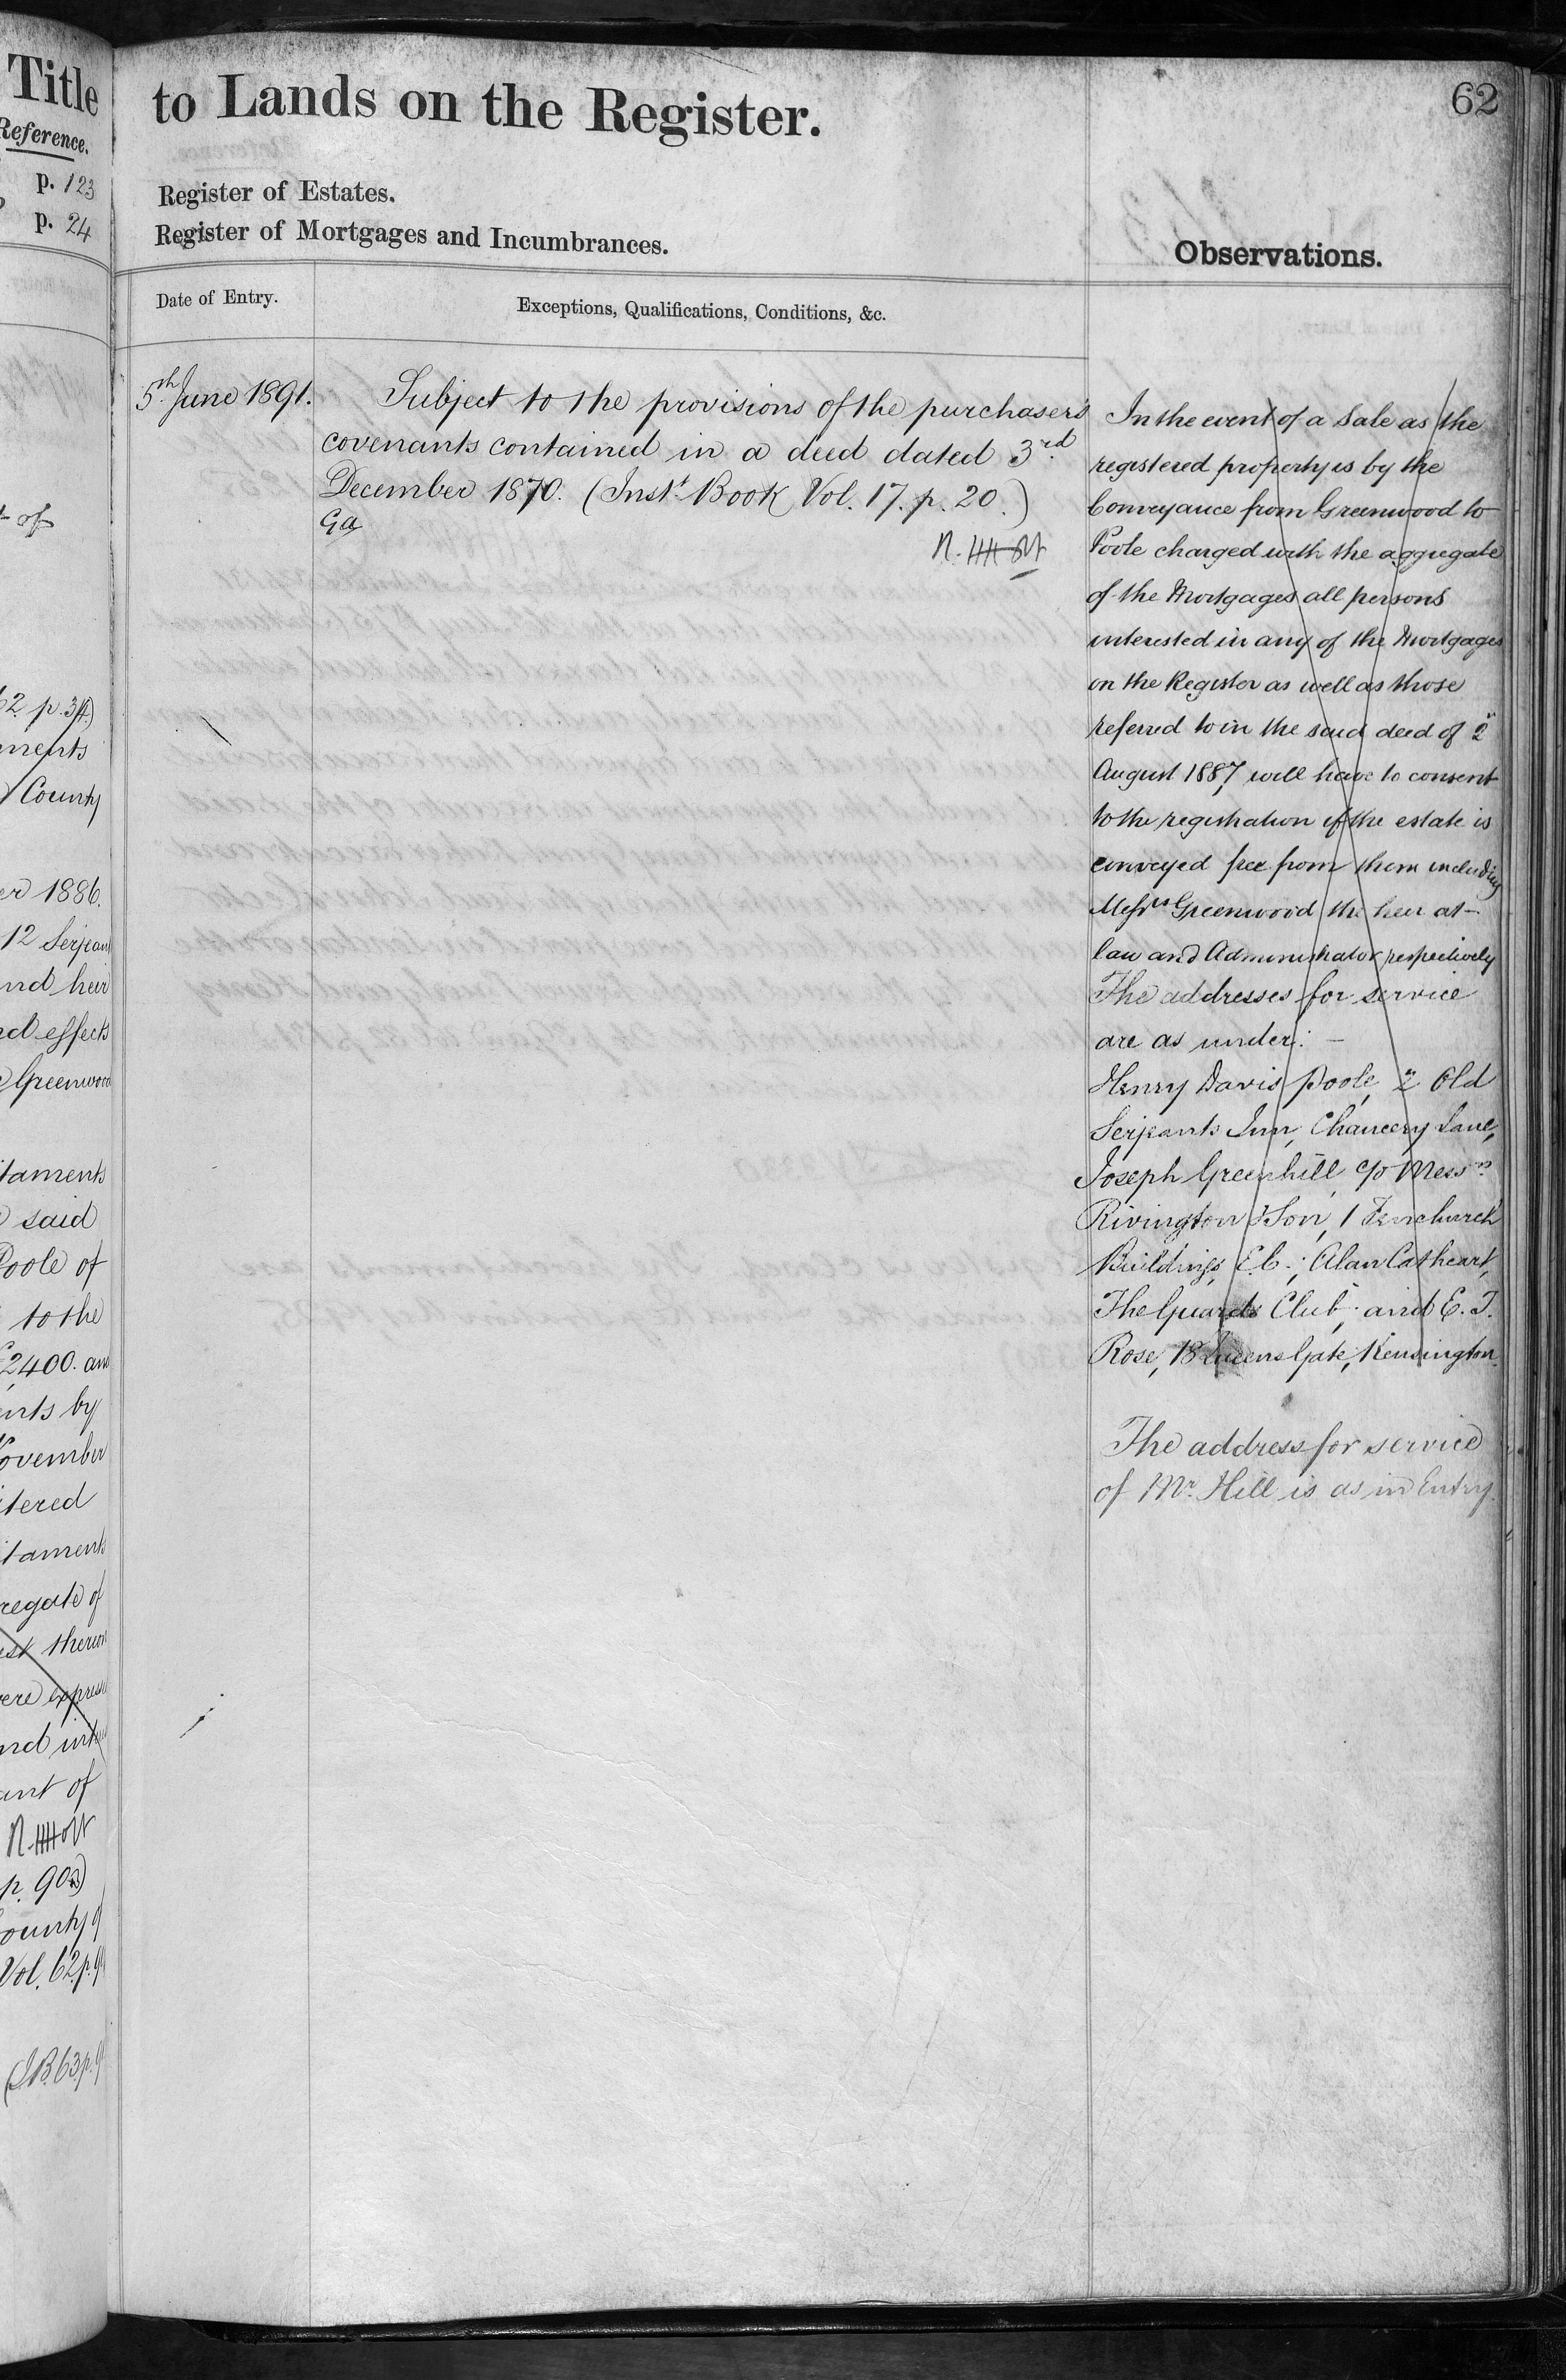 Title
Reference.
p. 123
p. 24
of
62 p. 34)
ments
County
er 1886.
12 Serjean
nd heir
nd effects
Greenwood
taments
said
Poole of
to the
£2,400. an
ents by
November
tered
taments
regate of
est thereon
were express
nd inte
ant of
p. 90a)
County of
Vol. 62 p. 9
(I.B. 63 p. 9
to Lands on the Register.
62
Register of Estates.
Register of Mortgages and Incumbrances.
Observations.
Date of Entry.
Exceptions, Qualifications, Conditions, &c.
5th June 1891.
Subject to the provisions of the purchasers
covenants contained in a deed dated 3rd
December 1870. (Inst. Book Vol. 17. p. 20.)
In the event of a Sale as the
registered property is by the
Conveyance from Greenwood to
Poole charged with the aggregate
of the Mortgages all persons
interested in any of the Mortgages
on the Register as well as those
referred to in the said deed of 2nd
August 1887 will have to consent
to the registration if the estate is
conveyed free from them including
Messrs Greenwood the heir at-
law and Administrator respectively
The addresses for service
are as under: —
Henry Davis Poole, 2 Old
Serjeants Inn, Chancery Lane,
Joseph Greenhill, c/o Messrs
Rivington & Son, 1 Fenchurch
Buildings, E.C.; Alan Cathcart,
The Guards Club; and E. T.
Rose, 18 Queens Gate, Kensington.
The address for service
of Mr. Hill is as in Entry.